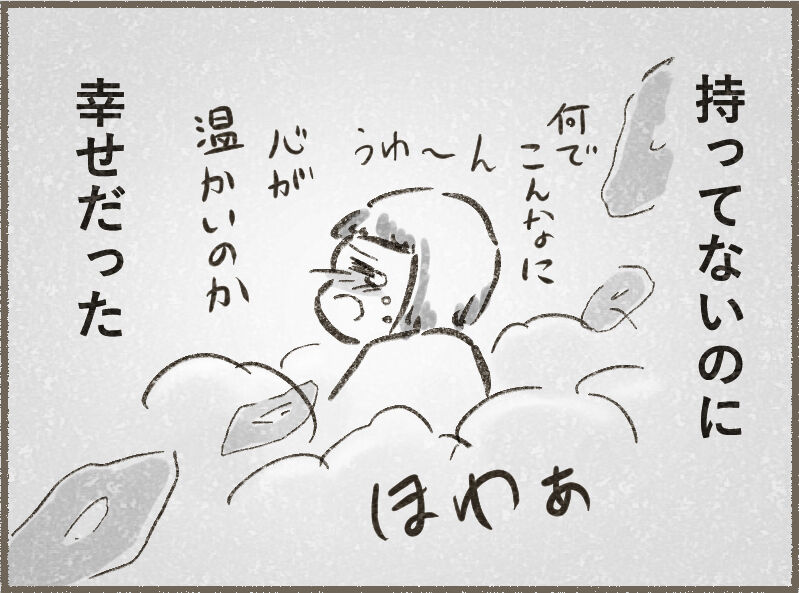 持ってないのに
何で
こんなに
うわ〜ん
心が
温かいのか
幸せだった
ほわぁ